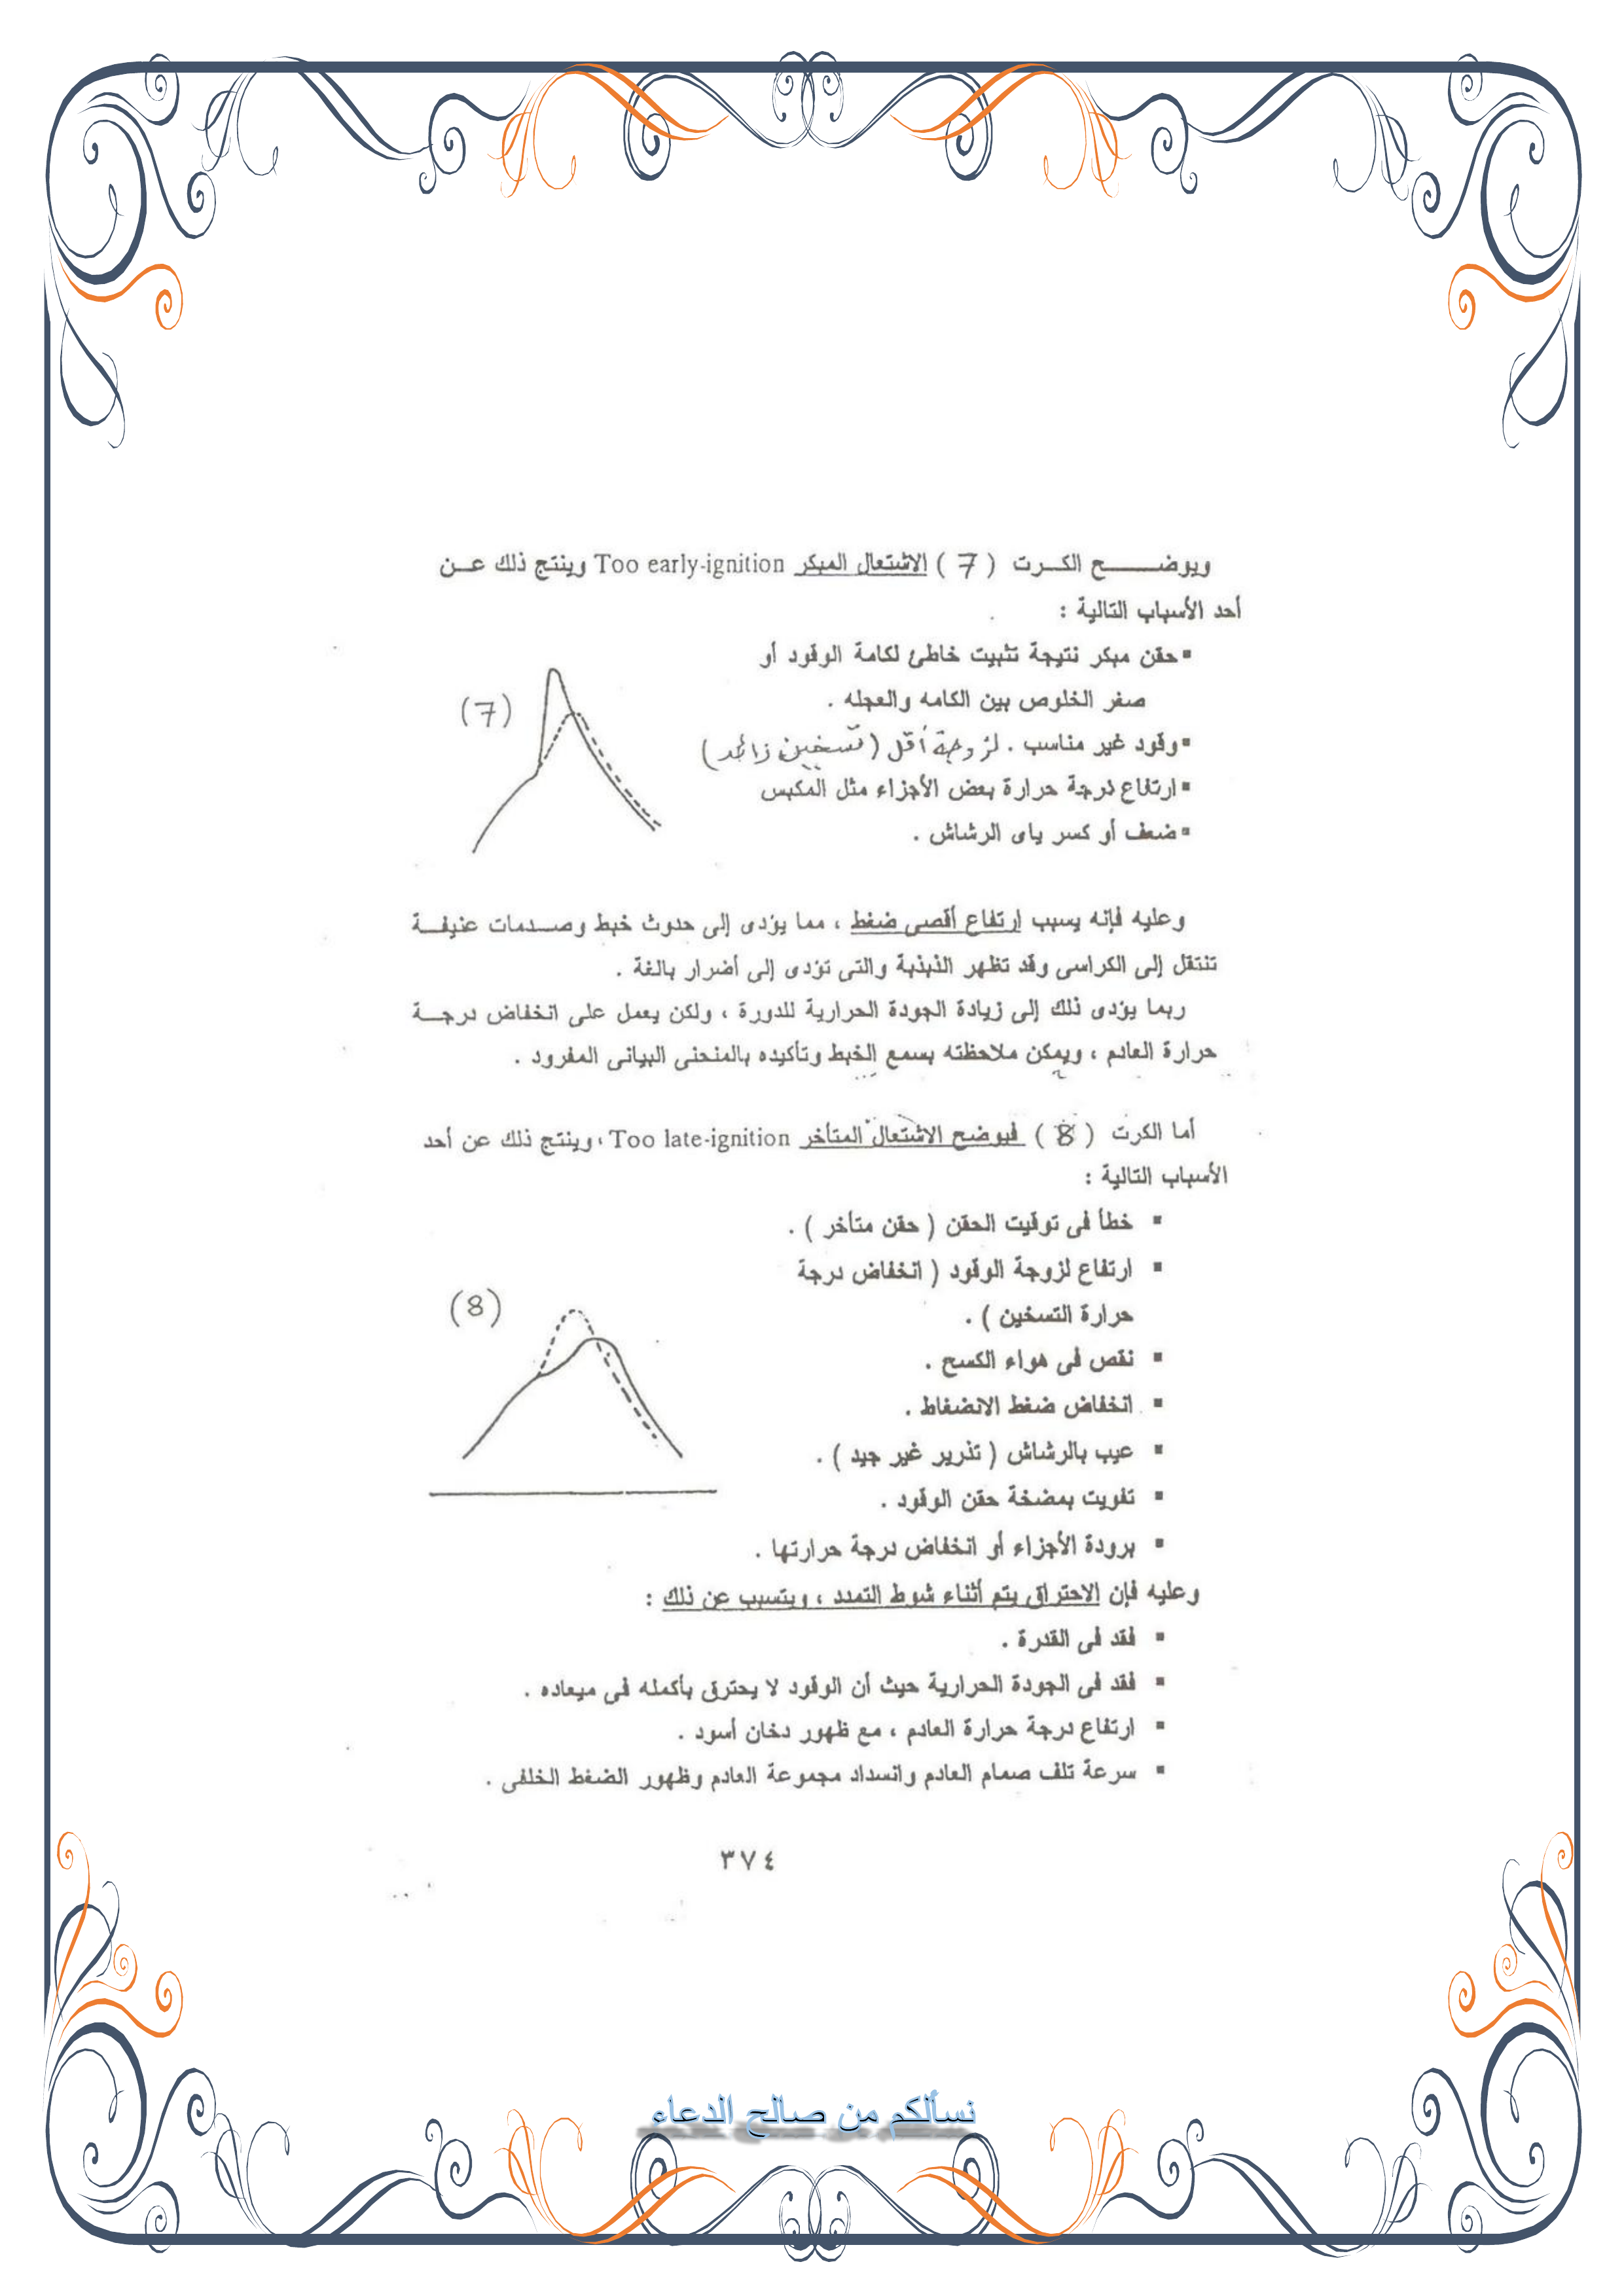 ويوضح الكرت ( 7 ) الاشتعال المبكر Too early-ignition وينتج ذلك عن
أحد الأسباب التالية :
▪ حقن مبكر نتيجة تثبيت خاطئ لكامة الوقود أو
صغر الخلوص بين الكامه والعجله .
(7)
▪ وقود غير مناسب . لزوجة أقل (تسخين زائد)
▪ ارتفاع درجة حرارة بعض الأجزاء مثل المكبس
▪ ضعف أو كسر ياى الرشاش .
وعليه فإنه يسبب ارتفاع أقصى ضغط ، مما يؤدى إلى حدوث خبط وصدمات عنيفة
تنتقل إلى الكراسى وقد تظهر الذبذبة والتى تؤدى إلى أضرار بالغة .
ربما يؤدى ذلك إلى زيادة الجودة الحرارية للدورة ، ولكن يعمل على انخفاض درجة
حرارة العادم ، ويمكن ملاحظته بسمع الخبط وتأكيده بالمنحنى البيانى المفرود .
أما الكرت ( 8 ) فيوضح الاشتعال المتأخر Too late-ignition ، وينتج ذلك عن أحد
الأسباب التالية :
▪ خطأ فى توقيت الحقن ( حقن متأخر ) .
▪ ارتفاع لزوجة الوقود ( انخفاض درجة
حرارة التسخين ) .
(8)
▪ نقص فى هواء الكسح .
▪ انخفاض ضغط الانضغاط .
▪ عيب بالرشاش ( تذرير غير جيد ) .
▪ تفويت بمضخة حقن الوقود .
▪ برودة الأجزاء أو انخفاض درجة حرارتها .
وعليه فإن الاحتراق يتم أثناء شوط التمدد ، ويتسبب عن ذلك :
▪ فقد فى القدرة .
▪ فقد فى الجودة الحرارية حيث أن الوقود لا يحترق بأكمله فى ميعاده .
▪ ارتفاع درجة حرارة العادم ، مع ظهور دخان أسود .
▪ سرعة تلف صمام العادم وانسداد مجموعة العادم وظهور الضغط الخلفى .
٣٧٤
نسألكم من صالح الدعاء